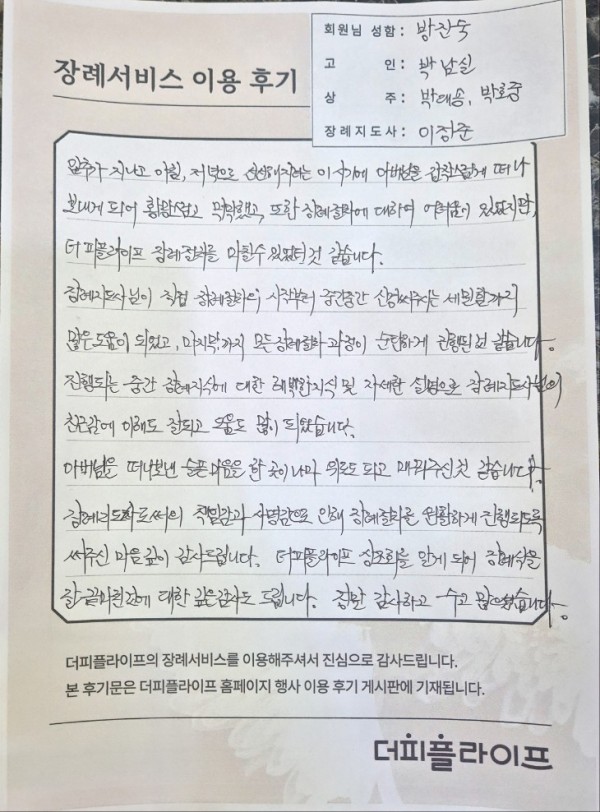 회원님 성함 : 방잔숙
고 인 : 박남실
상 주 : 박대송, 박호중
장례지도사 : 이장준
장례서비스 이용 후기
입추가 지나고 아침, 저녁으로 선선해지려는 이 시기에 아버님을 갑작스럽게 떠나
보내게 되어 황망스럽고 막막했고, 또한 장례절차에 대하여 어려움이 있었지만,
더피플라이프 장례절차를 마칠수있었던것 같습니다.
장례지도사님이 직접 장례절차의 시작부터 중간중간 신경써주시는 세밀함까지
많은도움이 되었고, 마지막까지 모든장례절차 과정이 순탄하게 진행된것 같습니다.
진행되는 중간 장례지식에 대한 해박한지식 및 자세한 설명으로 장례지도사님의
친근감에 이해도 잘되고 도움도 많이 되었습니다.
아버님을 떠나보낸 슬픈마음을 한 곳이나마 의로도 되고 채워주신것 같습니다.
장례지도사로써의 책임감과 사명감으로 인해 장례절차를 원활하게 진행되도록
써주신 마음 깊이 감사드립니다. 더피플라이프 상조회를 알게 되어 장례식을
잘 끝마친것에 대한 깊은감사도 드립니다. 정말 감사하고 수고 많으셨습니다.
더피플라이프의 장례서비스를 이용해주셔서 진심으로 감사드립니다.
본 후기문은 더피플라이프 홈페이지 행사 이용 후기 게시판에 기재됩니다.
더피플라이프